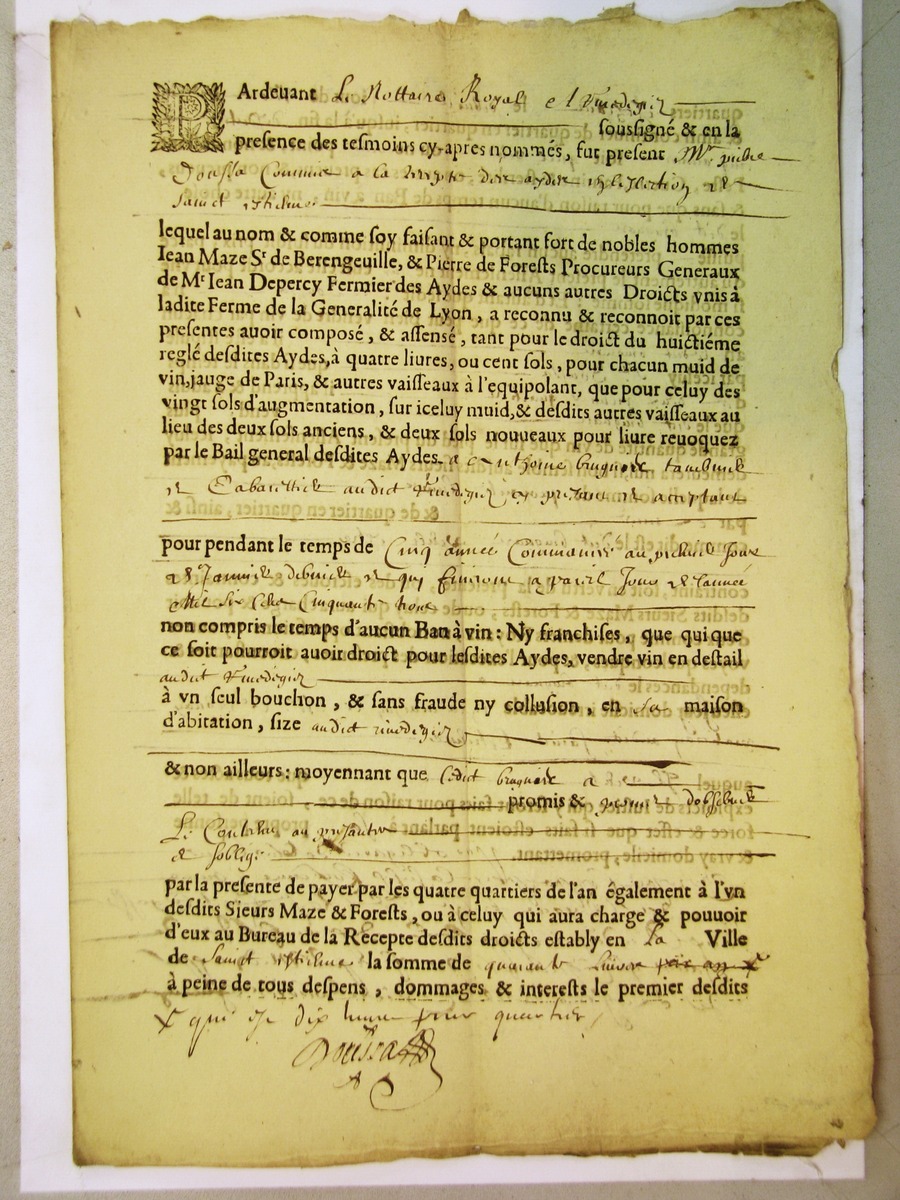 PArdeuant Le Nottaire Royal
soussigné & en la
presence des tesmoins cy-apres nommés, fut present Mre
Commis a la
Sainct Estienne
lequel au nom & comme soy faisant & portant fort de nobles hommes
Iean Maze Sr de Berengeuille, & Pierre de Forests Procureurs Generaux
de Mr Iean Depercy Fermier des Aydes & aucuns autres Droicts vnis à
ladite Ferme de la Generalité de Lyon, a reconnu & reconnoit par ces
presentes auoir composé, & assensé, tant pour le droict du huictiéme
reglé desdites Aydes, à quatre liures, ou cent sols, pour chacun muid de
vin, jauge de Paris, & autres vaisseaux à l'equipolant, que pour celuy des
vingt sols d'augmentation, sur iceluy muid, & desdits autres vaisseaux au
lieu des deux sols anciens, & deux sols nouueaux pour liure reuoquez
par le Bail general desdites Aydes. a
Cabarettier audict present & acceptant
pour pendant le temps de Cinq année Commancée au premier Jour
de Janvier dernier & qui finiront a pareil Jour de l'année
Mil six Cens Cinquante trois
non compris le temps d'aucun Ban à vin: Ny franchises, que qui que
ce soit pourroit auoir droict pour lesdites Aydes, vendre vin en destail
audict
à vn seul bouchon, & sans fraude ny collusion, en sa maison
d'abitation, size audict
& non ailleurs: moyennant que ledict a
promis & promet d'observer
Le Contenu au presantes
& s'oblige
par la presente de payer par les quatre quartiers de l'an également à l'vn
desdits Sieurs Maze & Forests, ou à celuy qui aura charge & pouuoir
d'eux au Bureau de la Recepte desdits droicts estably en La Ville
de Sainct Estienne la somme de quarante Livres par an X
à peine de tous despens, dommages & interests le premier desdits
X qui est dix livres pour quartier